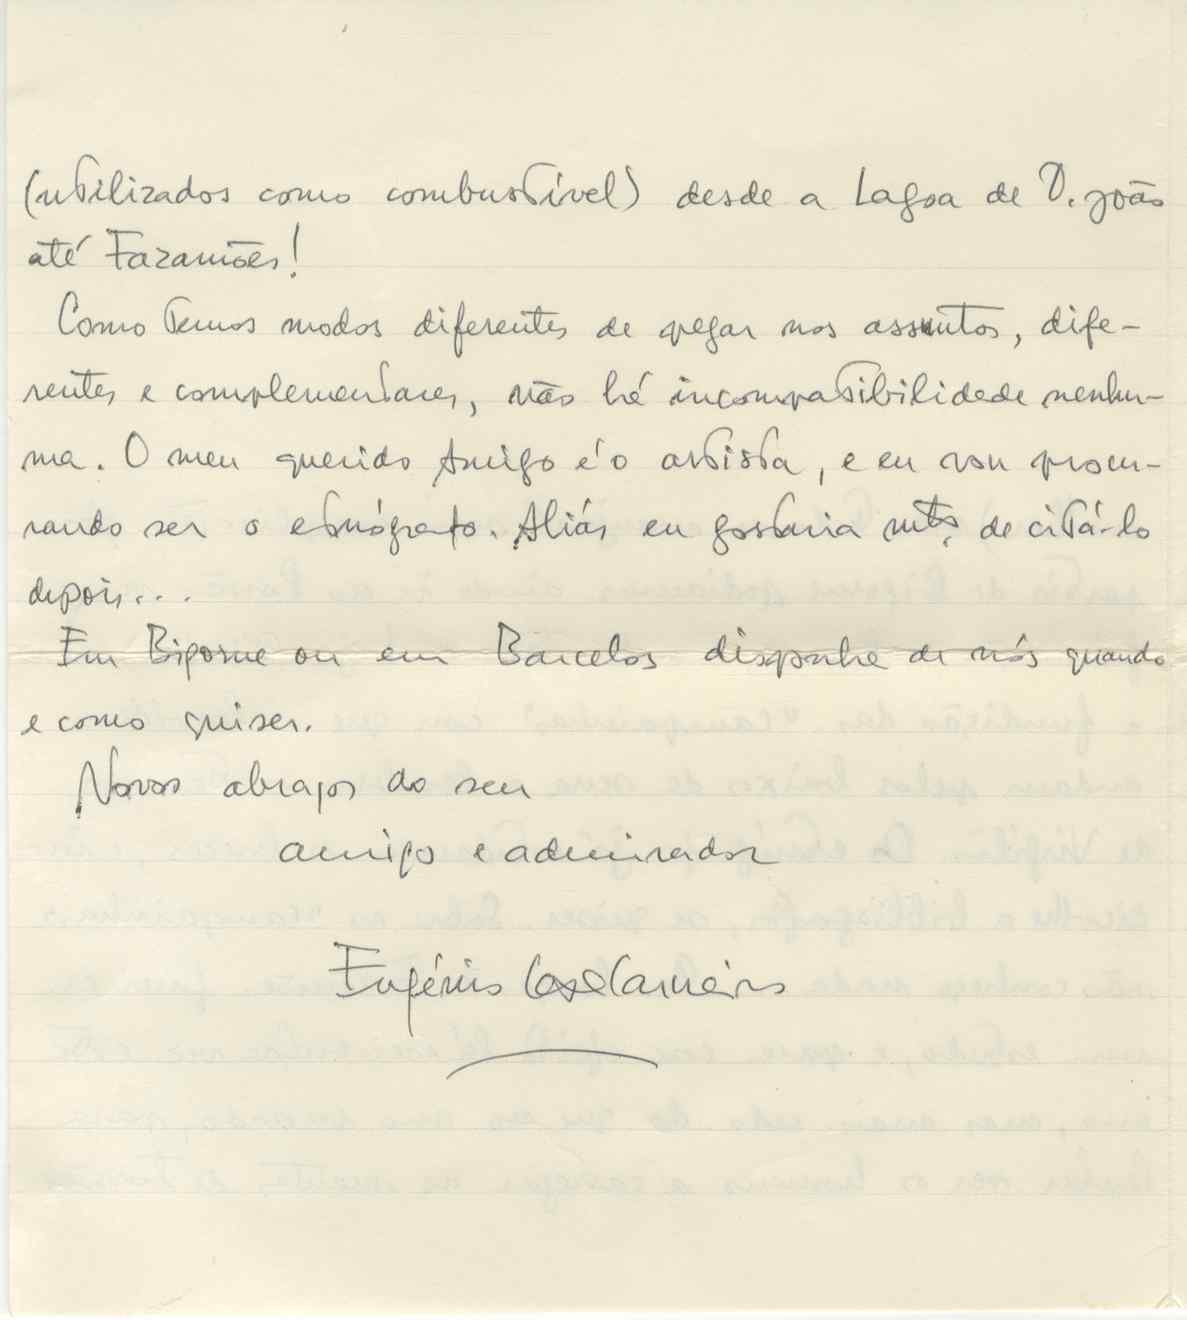 (utilizados como combustível) desde a Lagoa de D. João
até Fazamões!
Como temos modos diferentes de pegar nos assuntos, dife-
rentes e complementares, não há incompatibilidade nenhu-
ma. O meu querido Amigo é o artista, e eu vou procu-
rando ser o etnógrafo. Aliás eu gostaria mtº de citá-lo
depois...
Em Bigorne ou em Barcelos disponha de nós quando
e como quiser.
Novos abraços do seu
amigo e admirador
Eugénio Lapa Carneiro